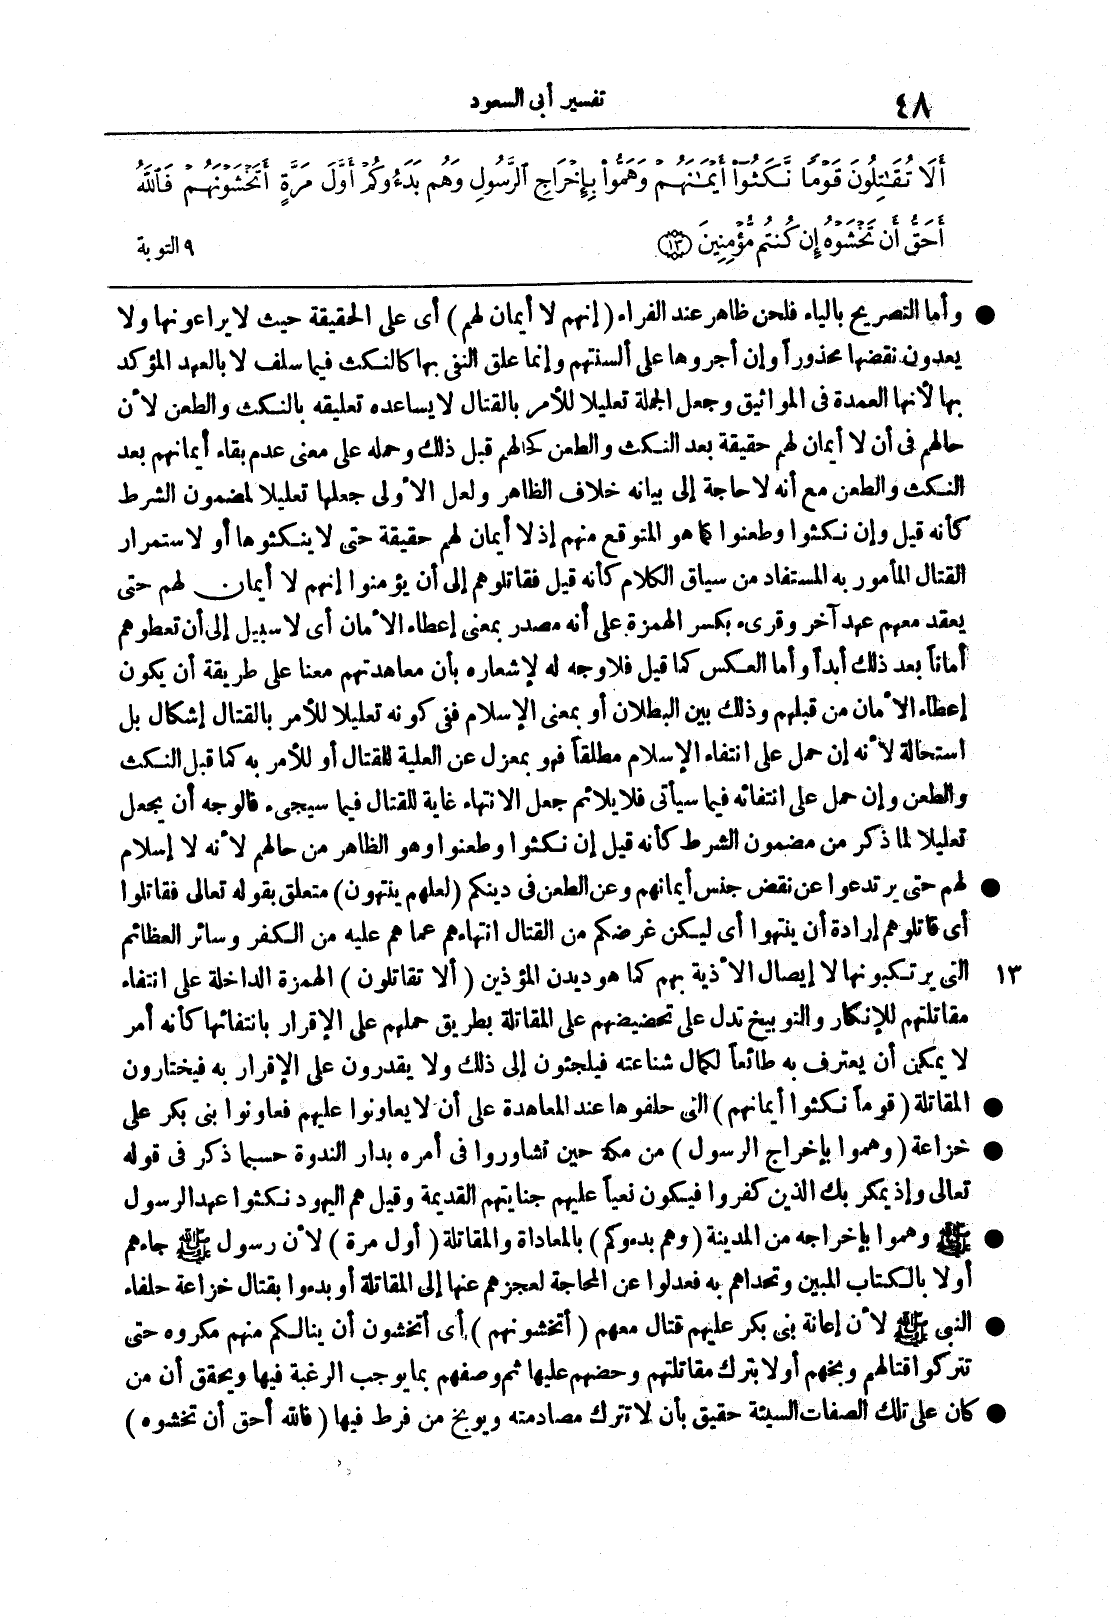 ٤٨
تفسير أبى السعود
أَلَا تُقَـٰتِلُونَ قَوْمًا نَّكَثُوٓا۟ أَيْمَـٰنَهُمْ وَهَمُّوا۟ بِإِخْرَاجِ ٱلرَّسُولِ وَهُم بَدَءُوكُمْ أَوَّلَ مَرَّةٍ أَتَخْشَوْنَهُمْ فَٱللَّهُ
أَحَقُّ أَن تَخْشَوْهُ إِن كُنتُم مُّؤْمِنِينَ ١٣
٩ التوبة
● وأما التصريح بالياء فلحن ظاهر عند الفراء (إنهم لا أيمان لهم) أى على الحقيقة حيث لا يراعونها ولا
يعدون نقضها محذوراً وإن أجروها على ألسنتهم وإنما علق النفى بها كالنكث فيما سلف لا بالعهد المؤكد
بها لأنها العمدة فى المواثيق وجعل الجملة تعليلا للأمر بالقتال لا يساعده تعليقه بالنكث والطعن لأن
حالهم فى أن لا أيمان لهم حقيقة بعد النكث والطعن كحالهم قبل ذلك وحمله على معنى عدم بقاء أيمانهم بعد
النكث والطعن مع أنه لا حاجة إلى بيانه خلاف الظاهر ولعل الأولى جعلها تعليلا لمضمون الشرط
كأنه قيل وإن نكثوا وطعنوا كما هو المتوقع منهم إذ لا أيمان لهم حقيقة حتى لا ينكثوها أو لاستمرار
القتال المأمور به المستفاد من سياق الكلام كأنه قيل فقاتلوهم إلى أن يؤمنوا إنهم لا أيمان لهم حتى
يعقد معهم عهد آخر وقرىء بكسر الهمزة على أنه مصدر بمعنى إعطاء الأمان أى لا سبيل إلى أن تعطوهم
أماناً بعد ذلك أبداً وأما العكس كما قيل فلا وجه له لإشعاره بأن معاهدتهم معنا على طريقة أن يكون
إعطاء الأمان من قبلهم وذلك بين البطلان أو بمعنى الإسلام ففى كونه تعليلا للأمر بالقتال إشكال بل
استحالة لأنه إن حمل على انتفاء الإسلام مطلقاً فهو بمعزل عن العلية للقتال أو للأمر به كما قبل النكث
والطعن وإن حمل على انتفائه فيما سيأتى فلا يلائم جعل الانتهاء غاية للقتال فيما سيجىء فالوجه أن يجعل
تعليلا لما ذكر من مضمون الشرط كأنه قيل إن نكثوا وطعنوا وهو الظاهر من حالهم لأنه لا إسلام
● لهم حتى يرتدعوا عن نقض جنس أيمانهم وعن الطعن فى دينكم (لعلهم ينتهون) متعلق بقوله تعالى فقاتلوا
أى قاتلوهم إرادة أن ينتهوا أى ليكن غرضكم من القتال انتهاءهم عما هم عليه من الكفر وسائر العظائم
١٣ التى يرتكبونها لا إيصال الأذية بهم كما هو ديدن المؤذين (ألا تقاتلون) الهمزة الداخلة على انتفاء
مقاتلتهم للإنكار والتوبيخ تدل على تحضيضهم على المقاتلة بطريق حملهم على الإقرار بانتفائها كأنه أمر
لا يمكن أن يعترف به طائعاً لكمال شناعته فيلجئون إلى ذلك ولا يقدرون على الإقرار به فيختارون
● المقاتلة (قوماً نكثوا أيمانهم) التى حلفوها عند المعاهدة على أن لا يعاونوا عليهم فعاونوا بنى بكر على
● خزاعة (وهموا بإخراج الرسول) من مكة حين تشاوروا فى أمره بدار الندوة حسبما ذكر فى قوله
تعالى وإذ يمكر بك الذين كفروا فيكون نعياً عليهم جنايتهم القديمة وقيل هم اليهود نكثوا عهد الرسول
● ﷺ وهموا بإخراجه من المدينة (وهم بدءوكم) بالمعاداة والمقاتلة (أول مرة) لأن رسول ﷺ جاءهم
أولا بالكتاب المبين وتحداهم به فعدلوا عن المحاجة لعجزهم عنها إلى المقاتلة أو بدءوا بقتال خزاعة حلفاء
● النبى ﷺ لأن إعانة بنى بكر عليهم قتال معهم (أتخشونهم) أى أتخشون أن ينالكم منهم مكروه حتى
تتركوا قتالهم وبخهم أولا بترك مقاتلتهم وحضهم عليها ثم وصفهم بما يوجب الرغبة فيها ويحقق أن من
● كان على تلك الصفات السيئة حقيق بأن لا تترك مصادمته ويوبخ من فرط فيها (فالله أحق أن تخشوه)